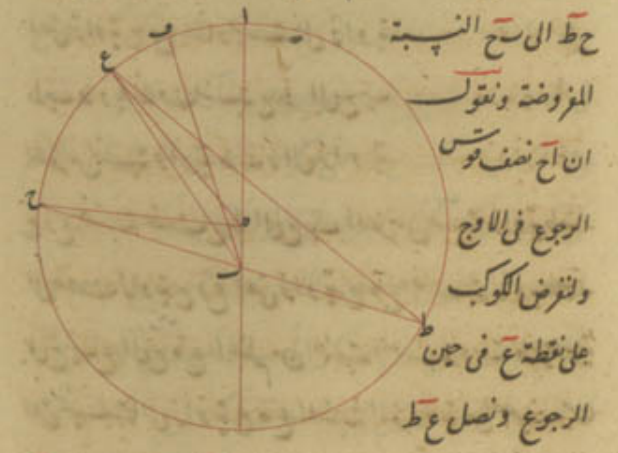 ح ط الى ر ح النسبة
المفروضة ونقول
ان ا ح نصف قوس
الرجوع فى الاوج
ولنفرض الكوكب
على نقطة ع فى حين
الرجوع ونصل ع ط
ا
ع
ح
ط